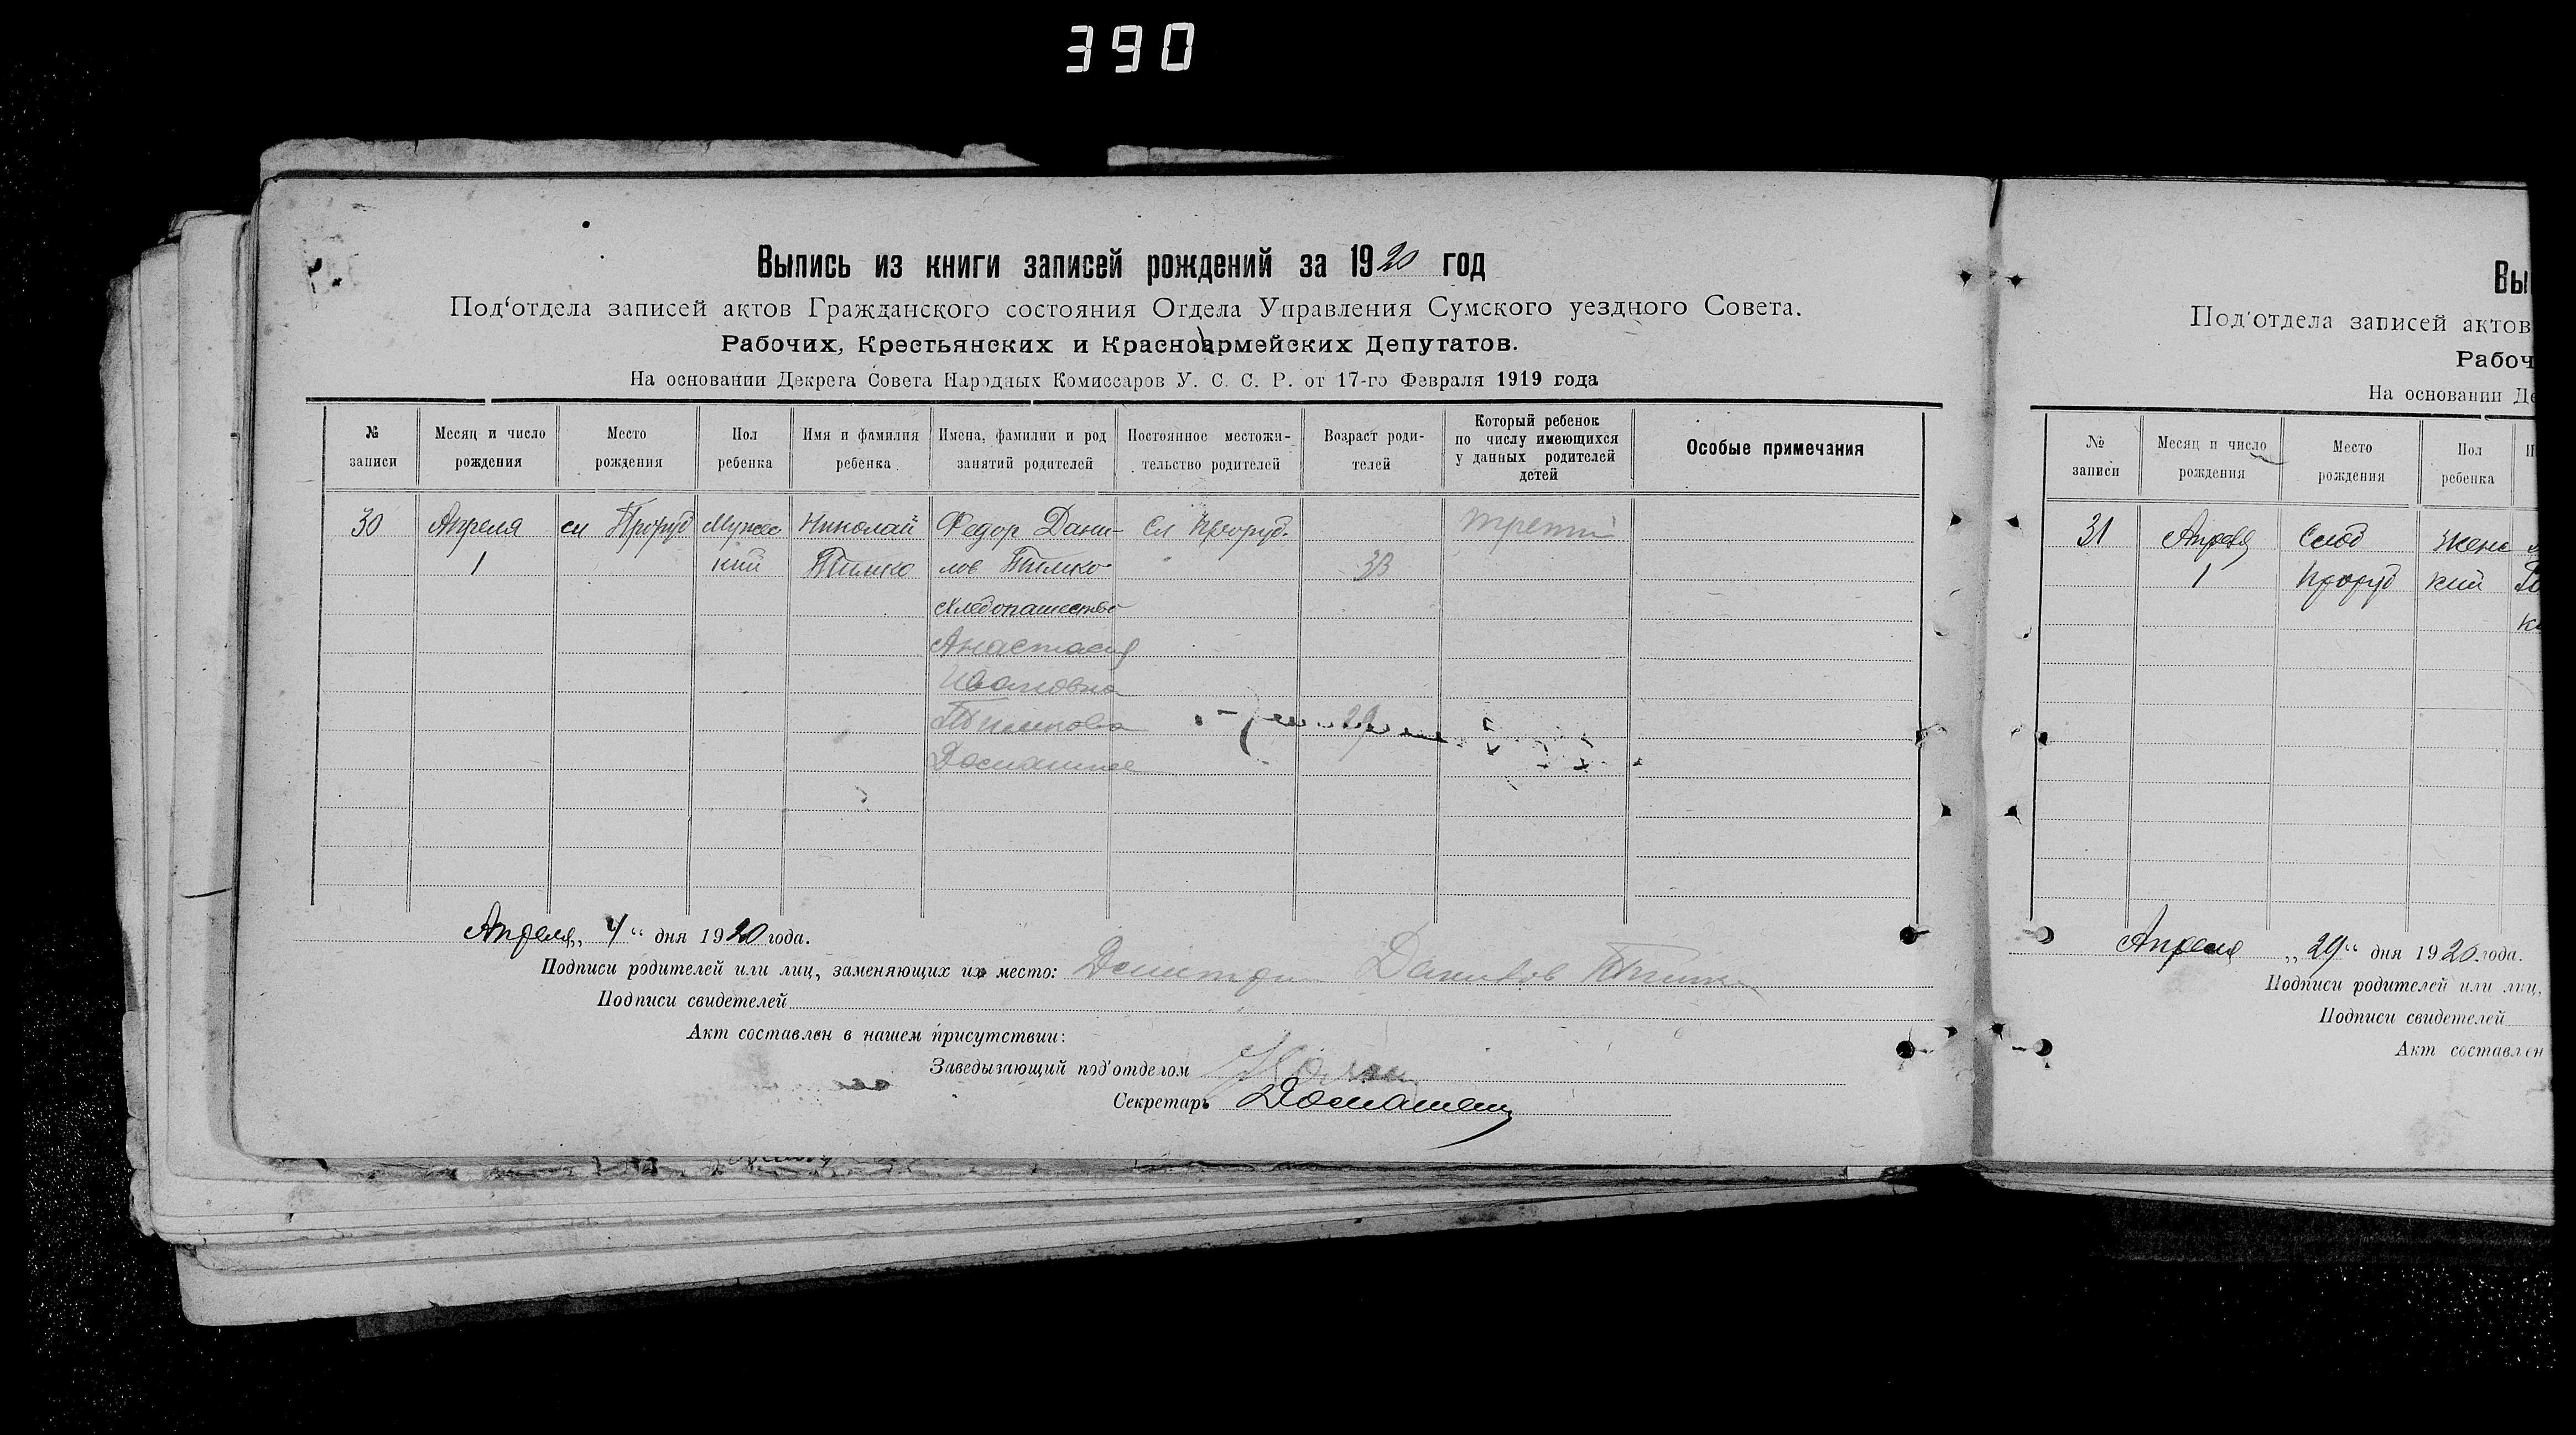 390
Выпись из книги записей рождений за 1920 год
Под‘отдела записей актов Гражданского состояния Отдела Управления Сумского уездного Совета.
Рабочих, Крестьянских и Красноармейских Депутатов.
На основании Декрета Совета Народных Комиссаров У. С. С. Р. от 17-го Февраля 1919 года
№ записи
Месяц и число рождения
Место рождения
Пол ребенка
Имя и фамилия ребенка
Имена, фамилии и род занятий родителей
Постоянное местожи-
тельство родителей
Возраст роди-
телей
Который ребенок
по числу имеющихся
у данных родителей
детей
Особые примечания
30 Апреля сл Проруб Мужес Николай Федор Дани- Сл Проруб. трети
1 кий Тимко лов Тимко 33
Хлебопашество
Анастасия
Ивановна
Тимкова
Домашнее
Апреля „ 4 “ дня 1920 года.
Подписи родителей или лиц, заменяющих их место: Данилов
Подписи свидетелей
Акт составлен в нашем присутствии:
Заведызающий под‘отделом
Секретарь
Вы
Под‘отдела записей актов
Рабоч
На основании Де
№ записи
Месяц и число рождения
Место рождения
Пол ребенка
31 Апреля Слоб Женс
1 Проруб кий
Апреля „ 29 “ дня 1920 года.
Подписи родителей или лиц,
Подписи свидетелей
Акт составлен